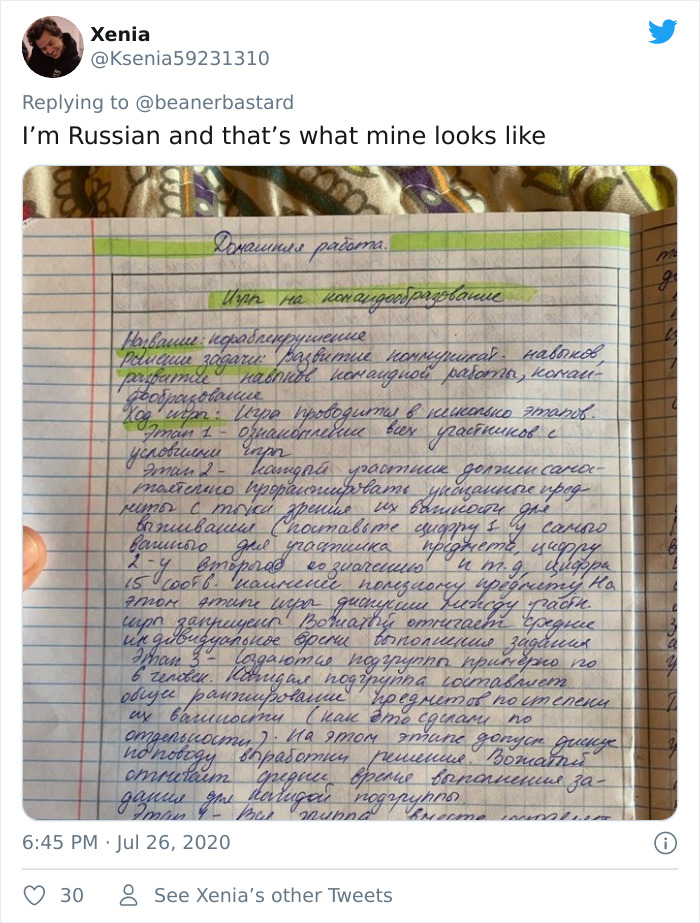 Xenia
@Ksenia59231310
Replying to @beanerbastard
I’m Russian and that’s what mine looks like
Домашняя работа.
Игры на командообразование
Название: кораблекрушение
Решаемые задачи: Развитие коммуникат. навыков,
развитие навыков командной работы, коман-
дообразование
Ход игры: Игра проводится в несколько этапов.
Этап 1 - ознакомление всех участников с
условиями игры
Этап 2 - Каждый участник должен само-
тоятельно проранжировать указанные пред-
меты с точки зрения их важности для
выживания (поставьте цифру 1 у самого
важного для участника предмета, цифру
2 - у второго по значению и т.д. цифра
15 соотв. наименее полезному предмету На
этом этапе игры дискуссии между участн.
игры запрещены Вожатый отмечает среднее
индивидуальное время выполнения задания
Этап 3 - Создаются подгруппы примерно по
6 человек. Каждая подгруппа составляет
общее ранжирование предметов по степени
их важности (как это сделали по
отдельности). На этом этапе допуск дискус
по поводу выработки решения. Вожатый
отмечает среднее время выполнения за-
дания для каждой подгруппы.
Этап 4 - Вся группа вместе составляет
6:45 PM · Jul 26, 2020
30
See Xenia’s other Tweets